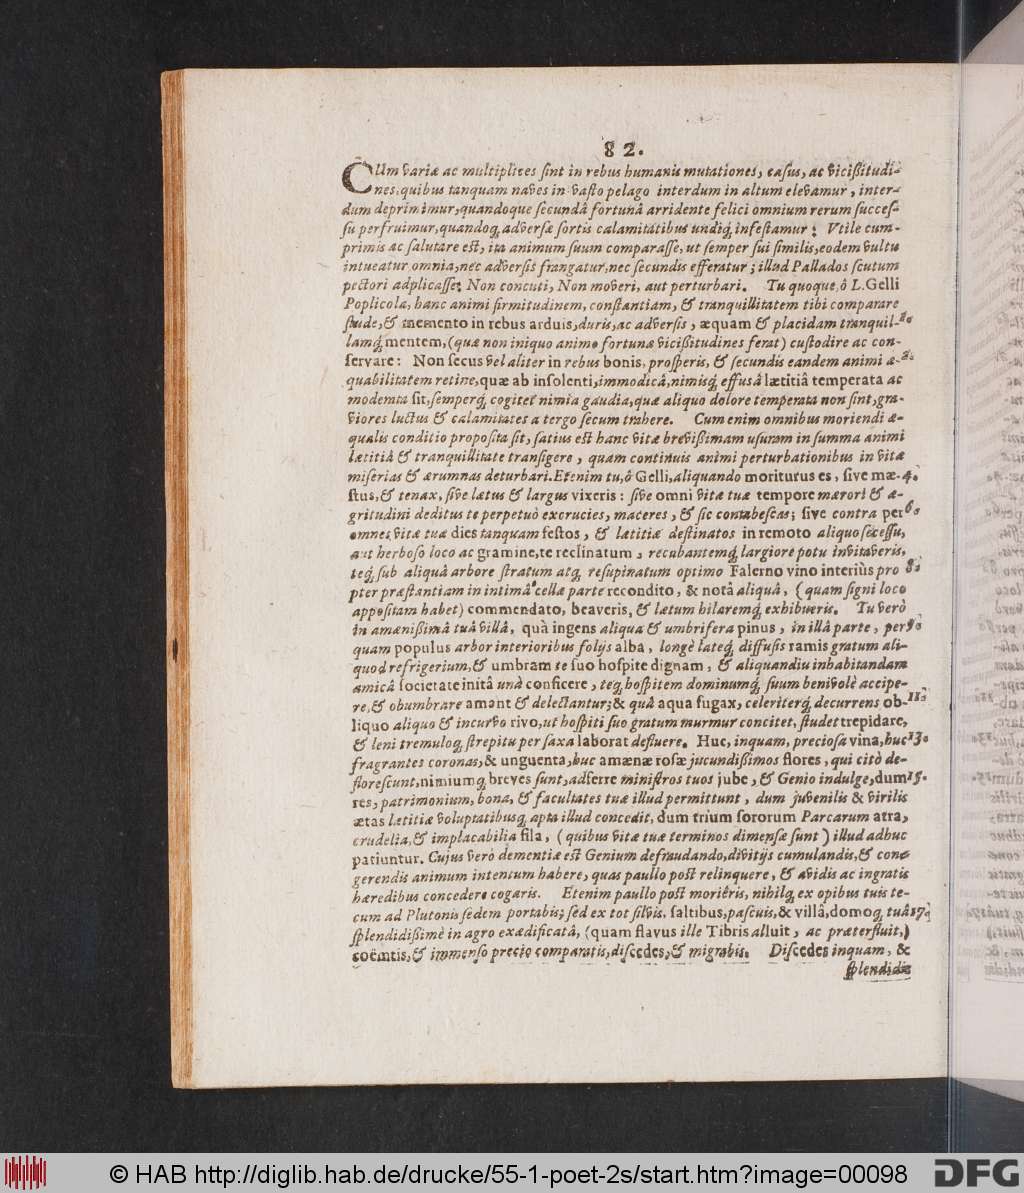 82.
CUm variæ ac multiplices sint in rebus humanis mutationes, casus, ac vicißitudi-
nes, quibus tanquam naves in vasto pelago interdum in altum elevamur, inter-
dum deprimimur, quandoque secundâ fortunâ arridente felici omnium rerum succes-
su perfruimur, quandoq; adversæ sortis calamitatibus undiq; infestamur: Vtile cum-
primis ac salutare est, ita animum suum comparasse, ut semper sui similis, eodem vultu
intueatur omnia, nec adversis frangatur, nec secundis efferatur; illud Pallados scutum
pectori adplicasse: Non concuti, Non moveri, aut perturbari. Tu quoque, ô L. Gelli
Poplicola, hanc animi firmitudinem, constantiam, & tranquillitatem tibi comparare
stude, & memento in rebus arduis, duris, ac adversis, æquam & placidam tranquil-
lamq; mentem, (quæ non iniquo animo fortunæ vicißitudines ferat) custodire ac con-
servare: Non secus vel aliter in rebus bonis, prosperis, & secundis eandem animi æ- 2.
quabilitatem retine, quæ ab insolenti, immodicâ, nimisq; effusâ lætitiâ temperata ac
moderata sit, semperq; cogitet nimia gaudia, quæ aliquo dolore temperata non sint, gra-
viores luctus & calamitates a tergo secum trahere. Cum enim omnibus moriendi æ-
qualis conditio proposita sit, satius est hanc vitæ brevißimam usuram in summa animi
lætitiâ & tranquillitate transigere, quam continuis animi perturbationibus in vitæ
miserias & ærumnas deturbari. Etenim tu, ô Gelli, aliquando moriturus es, sive mæ- 4.
stus, & tenax, sive lætus & largus vixeris: sive omni vitæ tuæ tempore mærori & æ-
gritudini deditus te perpetuò excrucies, maceres, & sic contabescas; sive contra per 6.
omnes vitæ tuæ dies tanquam festos, & lætitiæ destinatos in remoto aliquo secessu,
aut herboso loco ac gramine, te reclinatum, recubantemq; largiore potu invitaveris,
teq; sub aliquâ arbore stratum atq; resupinatum optimo Falerno vino interiùs pro 8.
pter præstantiam in intimâ cellæ parte recondito, & notâ aliquâ, (quam signi loco
appositam habet) commendato, beaveris, & lætum hilaremq; exhibueris. Tu verò
in amænißimâ tuâ villâ, quà ingens aliqua & umbrifera pinus, in illâ parte, per 9.
quam populus arbor interioribus folijs alba, longè lateq; diffusis ramis gratum ali-
quod refrigerium, & umbram te suo hospite dignam, & aliquandiu inhabitandam
amicâ societate initâ unà conficere, teq; hospitem dominumq; suum benivolè accipe-
re, & obumbrare amant & delectantur; & quâ aqua fugax, celeriterq; decurrens ob- 11.
liquo aliquo & incurvo rivo, ut hospiti suo gratum murmur concitet, studet trepidare,
& leni tremuloq; strepitu per saxa laborat defluere. Huc, inquam, preciosa vina, huc 13.
fragrantes coronas, & unguenta, huc amænæ rosæ jucundißimos flores, qui citò de-
florescunt, nimiumq; breves sunt, adferre ministros tuos jube, & Genio indulge, dum 15.
res, patrimonium, bona, & facultates tuæ illud permittunt, dum juvenilis & virilis
ætas lætitiæ voluptatibusq; apta illud concedit, dum trium sororum Parcarum atra,
crudelia, & implacabilia fila, (quibus vitæ tuæ terminos dimensæ sunt) illud adhuc
patiuntur. Cujus verò dementiæ est Genium defraudando, divitijs cumulandis, & con-
gerendis animum intentum habere, quas paullo post relinquere, & avidis ac ingratis
hæredibus concedere cogaris. Etenim paullo post moriêris, nihilq; ex opibus tuis te-
cum ad Plutonis sedem portabis; sed ex tot silvis, saltibus, pascuis, & villâ, domoq; tuâ 17.
splendidißimè in agro exædificatâ, (quam flavus ille Tibris alluit, ac præterfluit,)
coëmtis, & immenso precio comparatis, discedes, & migrabis. Discedes inquam, &
splendidis
© HAB http://diglib.hab.de/drucke/55-1-poet-2s/start.htm?image=00098
DFG